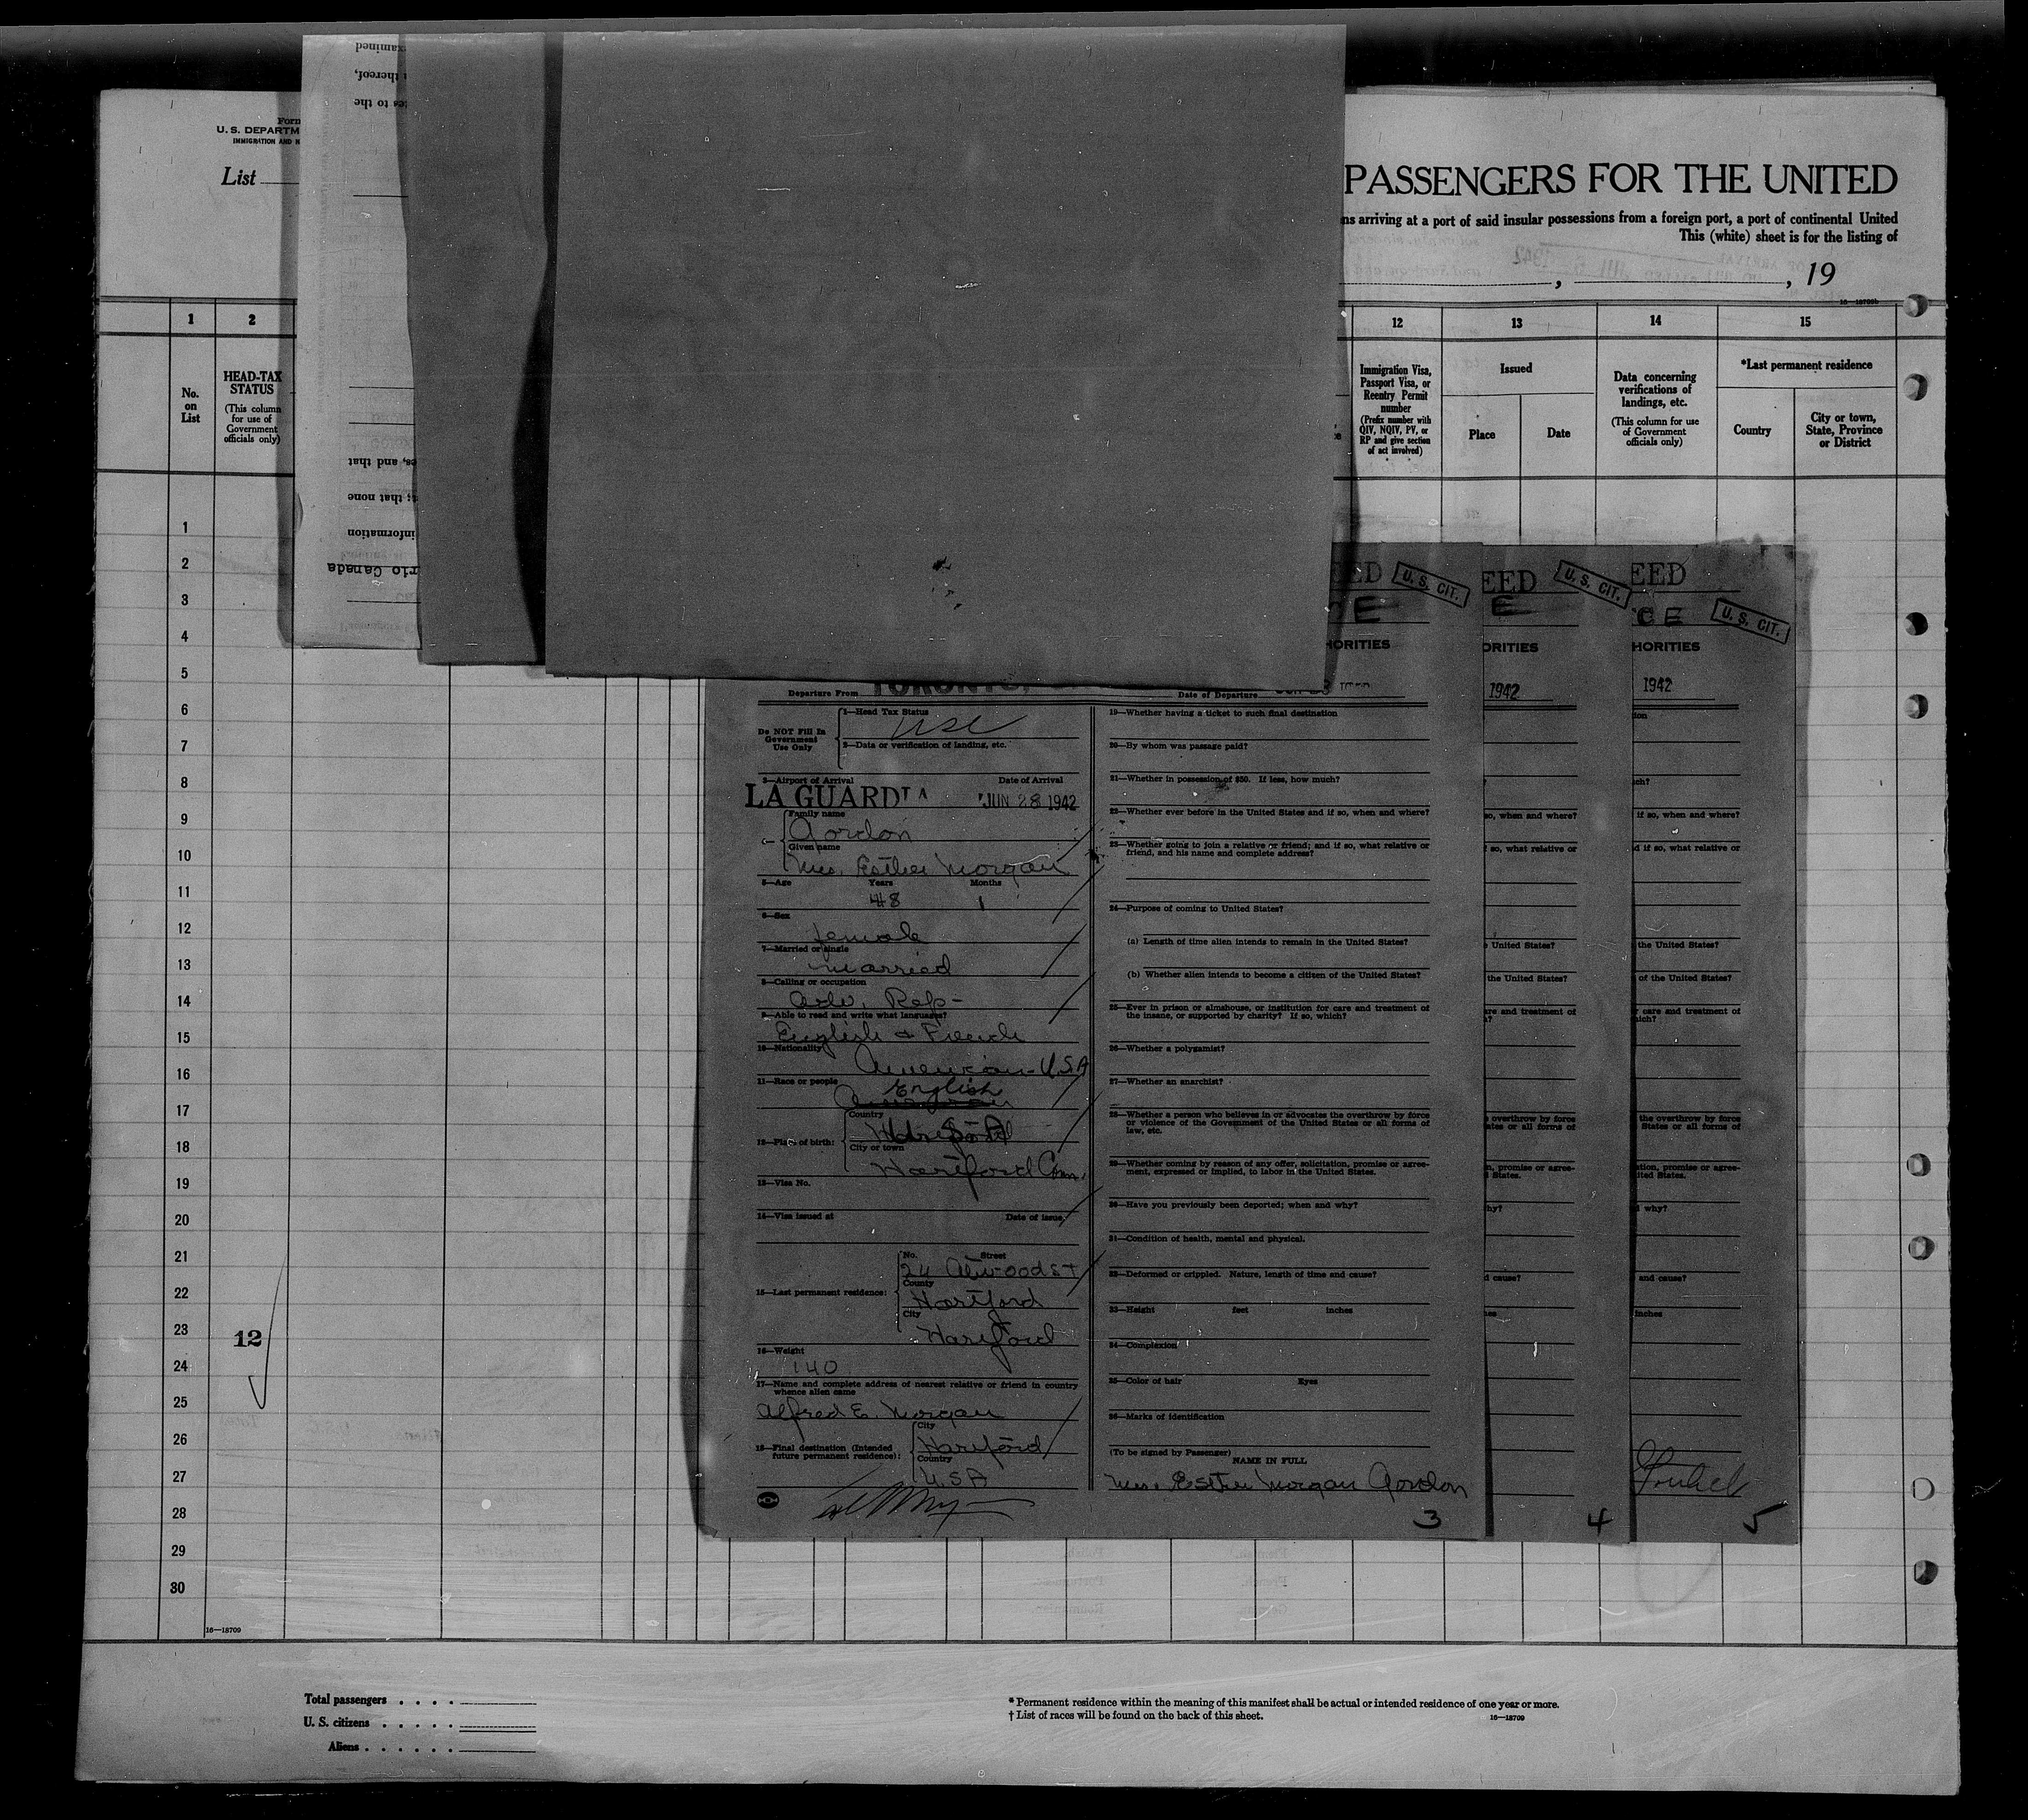 Form
U. S. DEPARTM
IMMIGRATION AND N
List
PASSENGERS FOR THE UNITED
ns arriving at a port of said insular possessions from a foreign port, a port of continental United
This (white) sheet is for the listing of
, , 19
16—18709b
1 2 12 13 14 15
No. on List
HEAD-TAX STATUS
(This column for use of Government officials only)
Immigration Visa, Passport Visa, or Reentry Permit number
(Prefix number with QIV, NQIV, PV, or RP and give section of act involved)
Issued
Place
Date
Data concerning verifications of landings, etc.
(This column for use of Government officials only)
*Last permanent residence
Country
City or town, State, Province or District
examined
thereof,
es to the
es, and that
s; that none
information
rio Canada
1
2
3
4
5
6
7
8
9
10
11
12
13
14
15
16
17
18
19
20
21
22
23
24
25
26
27
28
29
30
12
16—18709
EED U. S. CIT.
CE
HORITIES
Departure From TORONTO,
Date of Departure
Do NOT Fill In Government Use Only
1—Head Tax Status
USC
2—Data or verification of landing, etc.
3—Airport of Arrival Date of Arrival
LA GUARDIA JUN 28 1942
Family name
Gordon
Given name
Mrs. Esther Morgan
5—Age Years Months
48 1
6—Sex
female
7—Married or single
married
8—Calling or occupation
Adv. Rep-
9—Able to read and write what languages?
English & French
10—Nationality
American-U.S.A
11—Race or people
English
American
12—Place of birth:
Country
City or town
Hartford Conn.
13—Visa No.
14—Visa issued at Date of issue
15—Last permanent residence:
No. Street
24 Atwood St
County
Hartford
City
Hartford
16—Weight
140
17—Name and complete address of nearest relative or friend in country
whence alien came
Alfred E. Morgan
18—Final destination (Intended future permanent residence):
City
Hartford
Country
U.S.A
19—Whether having a ticket to such final destination
20—By whom was passage paid?
21—Whether in possession of $50. If less, how much?
22—Whether ever before in the United States and if so, when and where?
23—Whether going to join a relative or friend; and if so, what relative or
friend, and his name and complete address?
24—Purpose of coming to United States?
(a) Length of time alien intends to remain in the United States?
(b) Whether alien intends to become a citizen of the United States?
25—Ever in prison or almshouse, or institution for care and treatment of
the insane, or supported by charity? If so, which?
26—Whether a polygamist?
27—Whether an anarchist?
28—Whether a person who believes in or advocates the overthrow by force
or violence of the Government of the United States or all forms of
law, etc.
29—Whether coming by reason of any offer, solicitation, promise or agree-
ment, expressed or implied, to labor in the United States.
30—Have you previously been deported; when and why?
31—Condition of health, mental and physical.
32—Deformed or crippled. Nature, length of time and cause?
33—Height feet inches
34—Complexion
35—Color of hair Eyes
36—Marks of identification
(To be signed by Passenger)
NAME IN FULL
Mrs. Esther Morgan Gordon
3
EED U. S. CIT.
E
ORITIES
1942
?
so, when and where?
f so, what relative or
e United States?
the United States?
are and treatment of
h?
e overthrow by force
ates or all forms of
n, promise or agree-
d States.
hy?
d cause?
hes
4
EED
CE U. S. CIT.
HORITIES
1942
ion
uch?
if so, when and where?
d if so, what relative or
the United States?
of the United States?
r care and treatment of
hich?
the overthrow by force
States or all forms of
ation, promise or agree-
ited States.
d why?
and cause?
inches
5
Total passengers . . . .
U. S. citizens . . . . .
Aliens . . . . . .
* Permanent residence within the meaning of this manifest shall be actual or intended residence of one year or more.
† List of races will be found on the back of this sheet.
16—18709